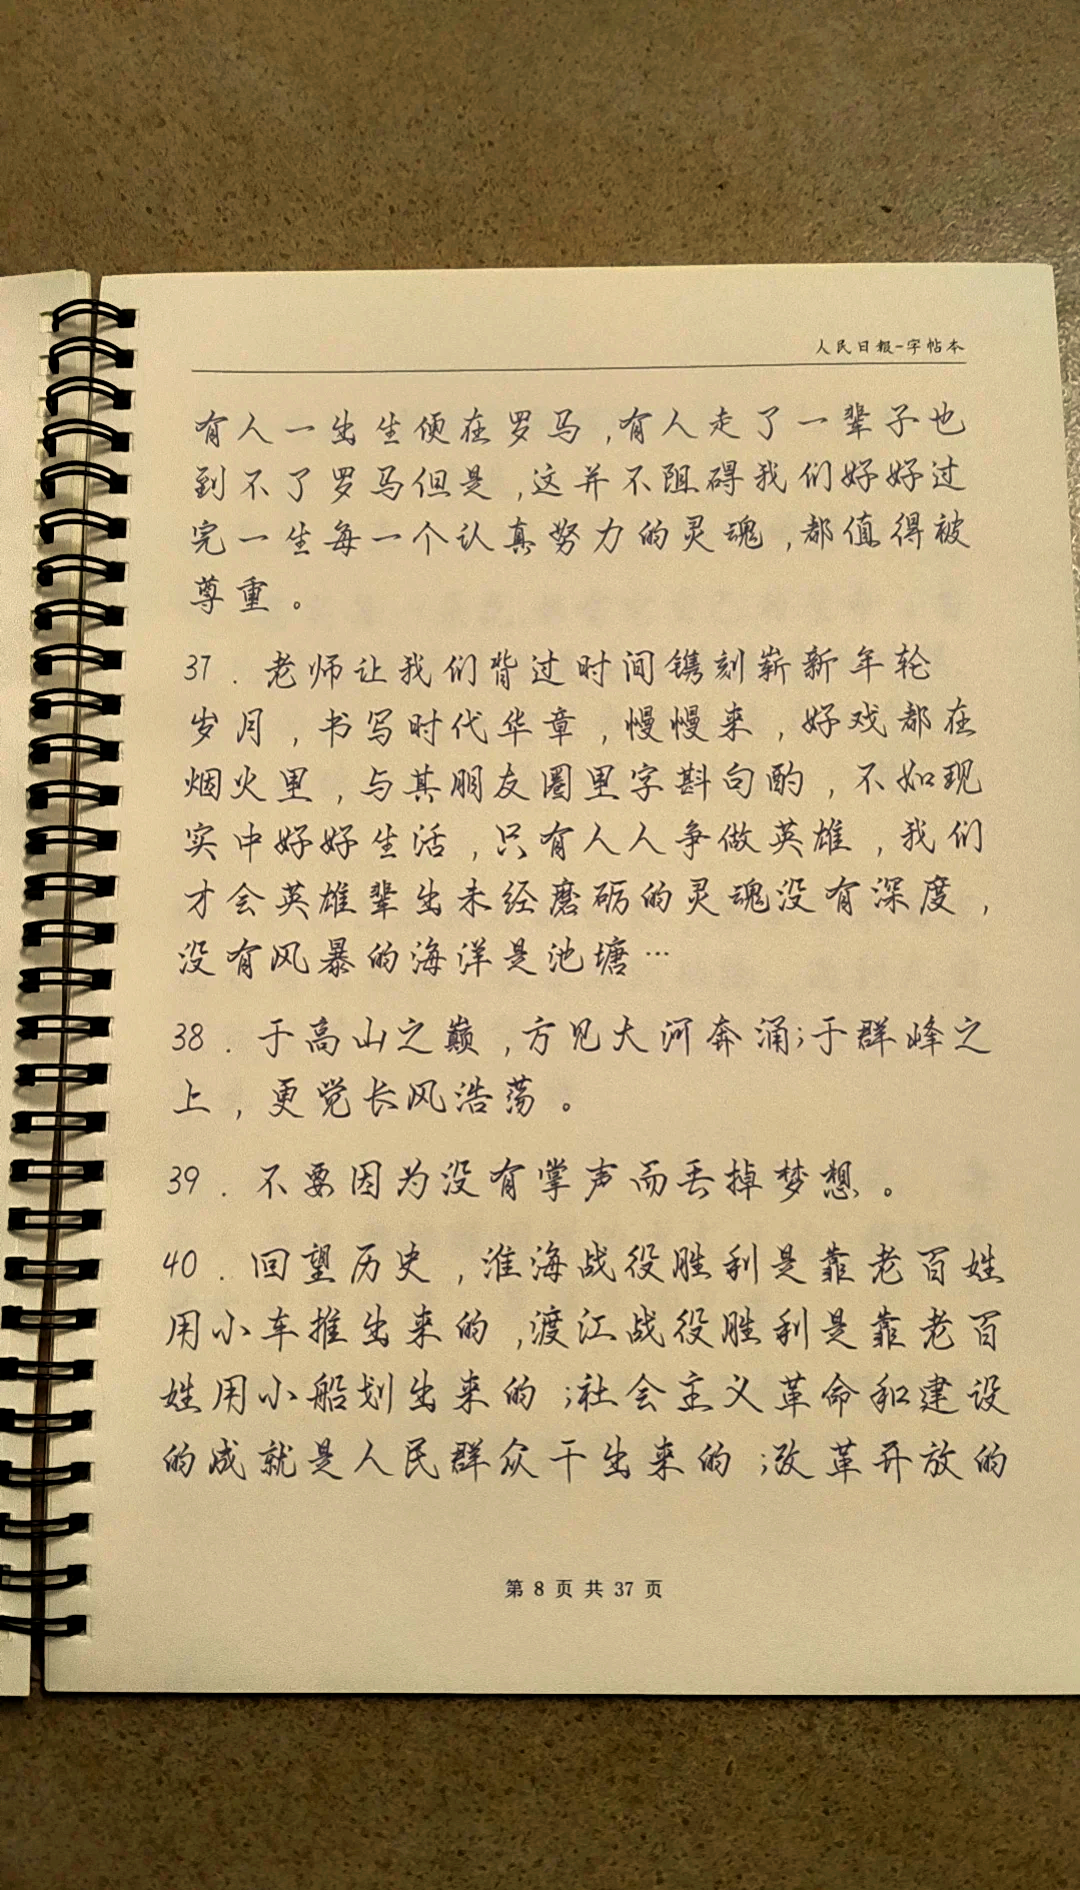 人民日報-字帖本
有人一出生便在罗马,有人走了一辈子也
到不了罗马但是,这并不阻碍我们好好过
完一生每一个认真努力的灵魂,都值得被
尊重。
37.老师让我们背过时间镌刻崭新年轮
岁月,书写时代华章,慢慢来,好戏都在
烟火里,与其朋友圈里字斟句酌,不如现
实中好好生活,只有人人争做英雄,我们
才会英雄辈出未经磨砺的灵魂没有深度,
没有风暴的海洋是池塘…
38.于高山之巅,方见大河奔涌;于群峰之
上,更觉长风浩荡。
39.不要因为没有掌声而丢掉梦想。
40.回望历史,淮海战役胜利是靠老百姓
用小车推出来的,渡江战役胜利是靠老百
姓用小船划出来的;社会主义革命和建设
的成就是人民群众干出来的;改革开放的
第 8 页 共 37 页